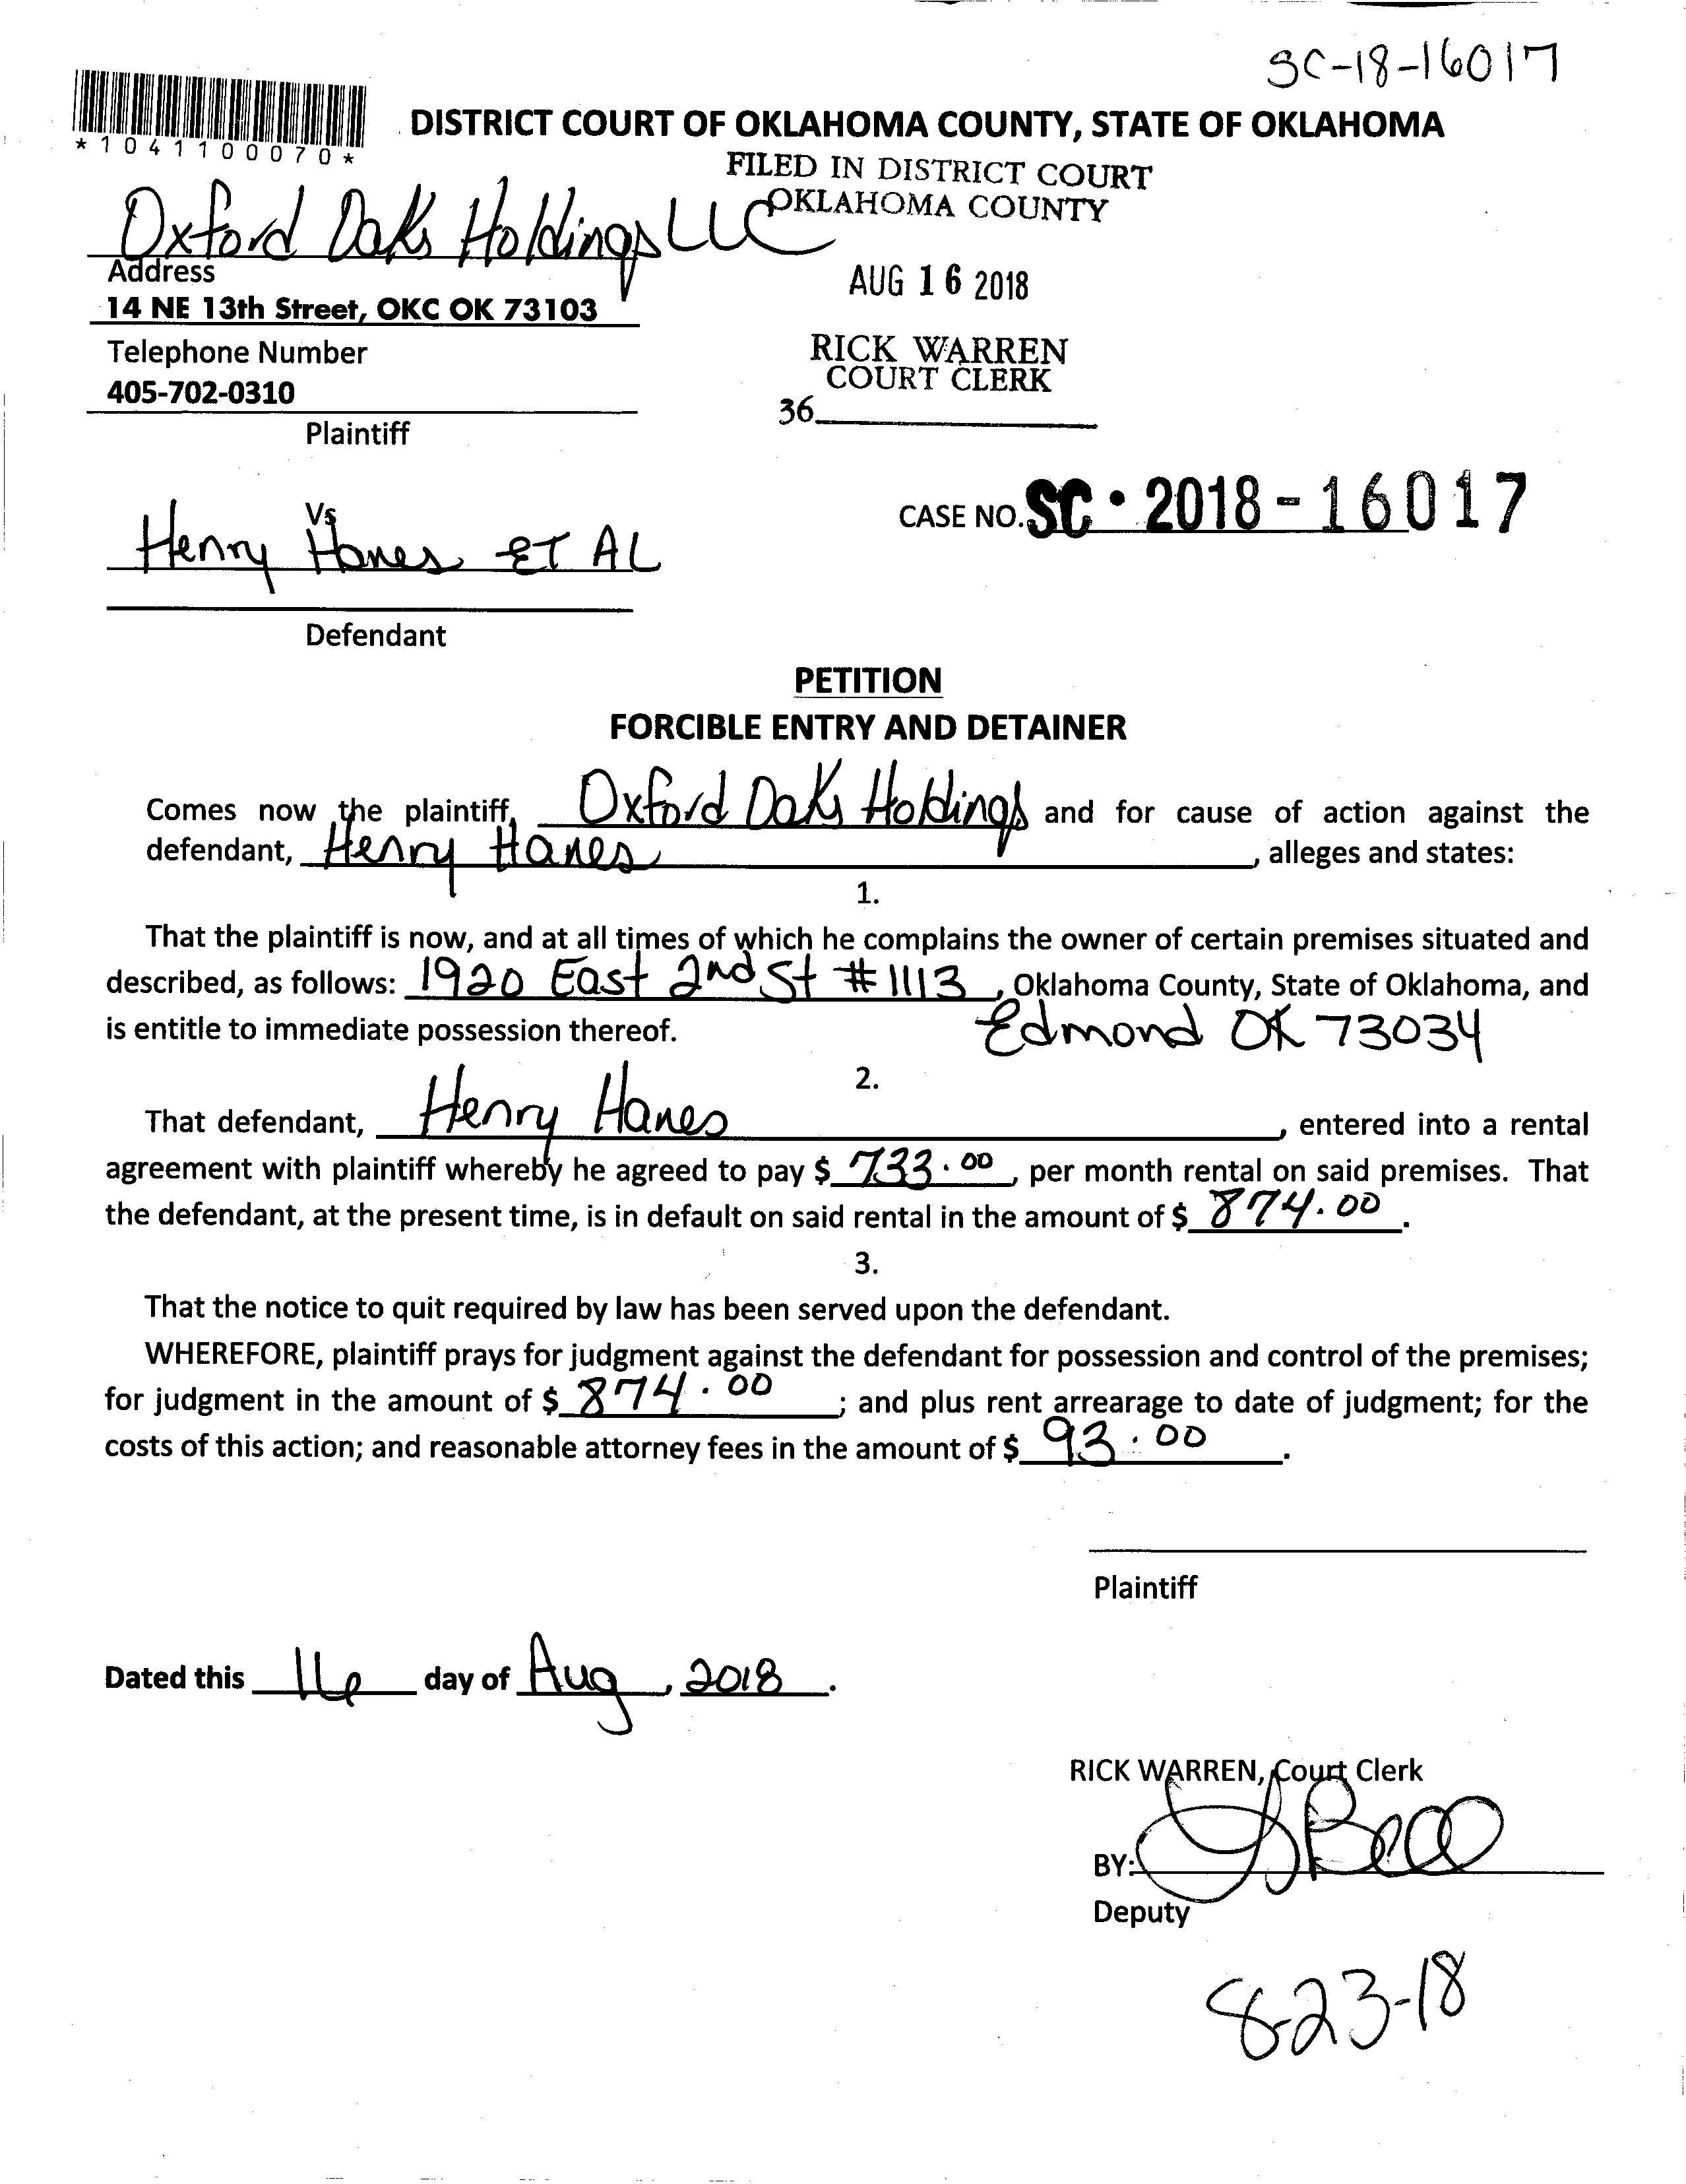 SC-18-16017
*1041100070*
DISTRICT COURT OF OKLAHOMA COUNTY, STATE OF OKLAHOMA
FILED IN DISTRICT COURT
OKLAHOMA COUNTY
Oxford Oaks Holdings LLC
Address
14 NE 13th Street, OKC OK 73103
AUG 16 2018
Telephone Number
405-702-0310
RICK WARREN
COURT CLERK
36
Plaintiff
Vs
CASE NO. SC - 2018 - 16017
Henry Hanes ET AL
Defendant
PETITION
FORCIBLE ENTRY AND DETAINER
Comes now the plaintiff, Oxford Oaks Holdings and for cause of action against the
defendant, Henry Hanes, alleges and states:
1.
That the plaintiff is now, and at all times of which he complains the owner of certain premises situated and
described, as follows: 1920 East 2nd St #1113, Oklahoma County, State of Oklahoma, and
is entitle to immediate possession thereof. Edmond OK 73034
2.
That defendant, Henry Hanes, entered into a rental
agreement with plaintiff whereby he agreed to pay $ 733.00, per month rental on said premises. That
the defendant, at the present time, is in default on said rental in the amount of $ 874.00.
3.
That the notice to quit required by law has been served upon the defendant.
WHEREFORE, plaintiff prays for judgment against the defendant for possession and control of the premises;
for judgment in the amount of $ 874.00; and plus rent arrearage to date of judgment; for the
costs of this action; and reasonable attorney fees in the amount of $ 93.00.
Plaintiff
Dated this 16 day of Aug, 2018.
RICK WARREN, Court Clerk
BY:
Deputy
8-23-18